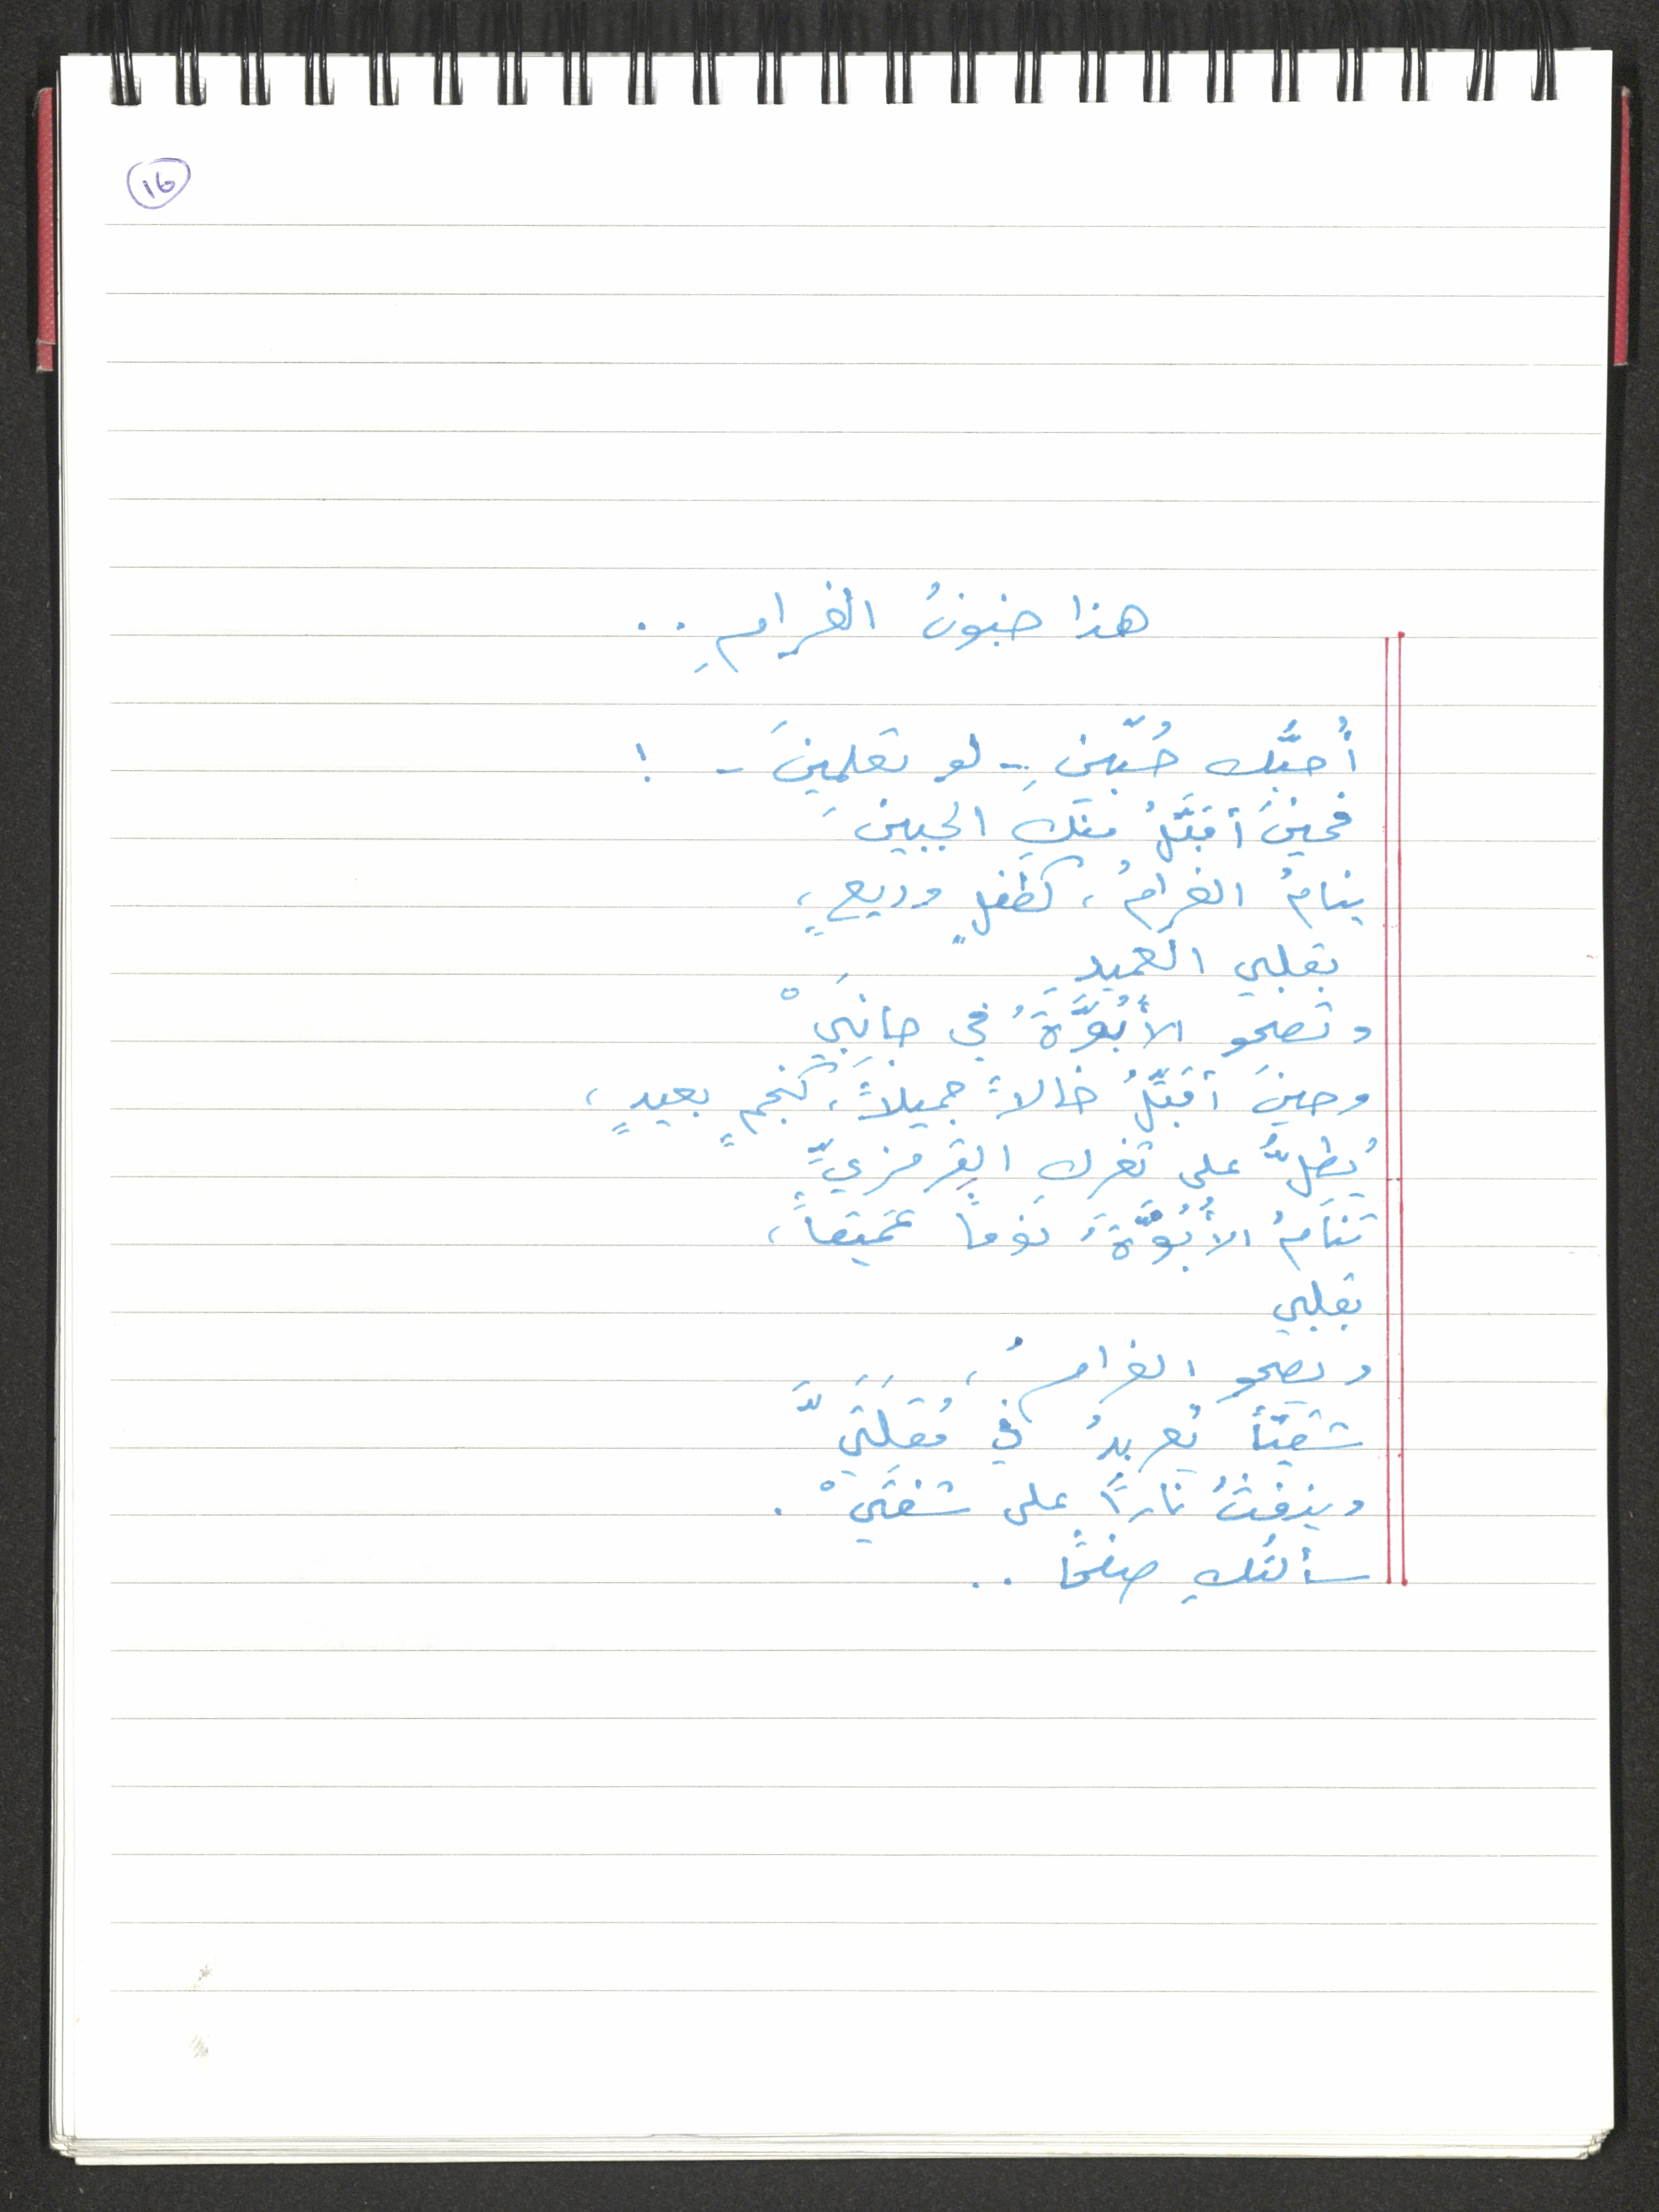 16
هذا جنونُ الغرامِ ..
أُحبُّك حُبّينِ - لو تعلمينَ - !
فحينَ أقبّلُ منكِ الجبينَ
ينامُ الغرامُ، كطفلٍ وديعٍ،
بقلبي العميدِ
وتصحو الأُبُوَّةُ في جانبَيْ
وحينَ أقبّلُ خالاً جميلاً، كنجمٍ بعيدٍ،
يُطلُّ على ثغرك القِرمزيِّ
تنَامُ الأُبُوَّةُ نوماً عَميقاً،
بقلبي
ويصحو الغرامُ،
شقيّاً يُعربدُ في مُقلَتَيَّ
وينفثُ ناراً على شفتَيْ .
سألتُكِ صفحًا ..